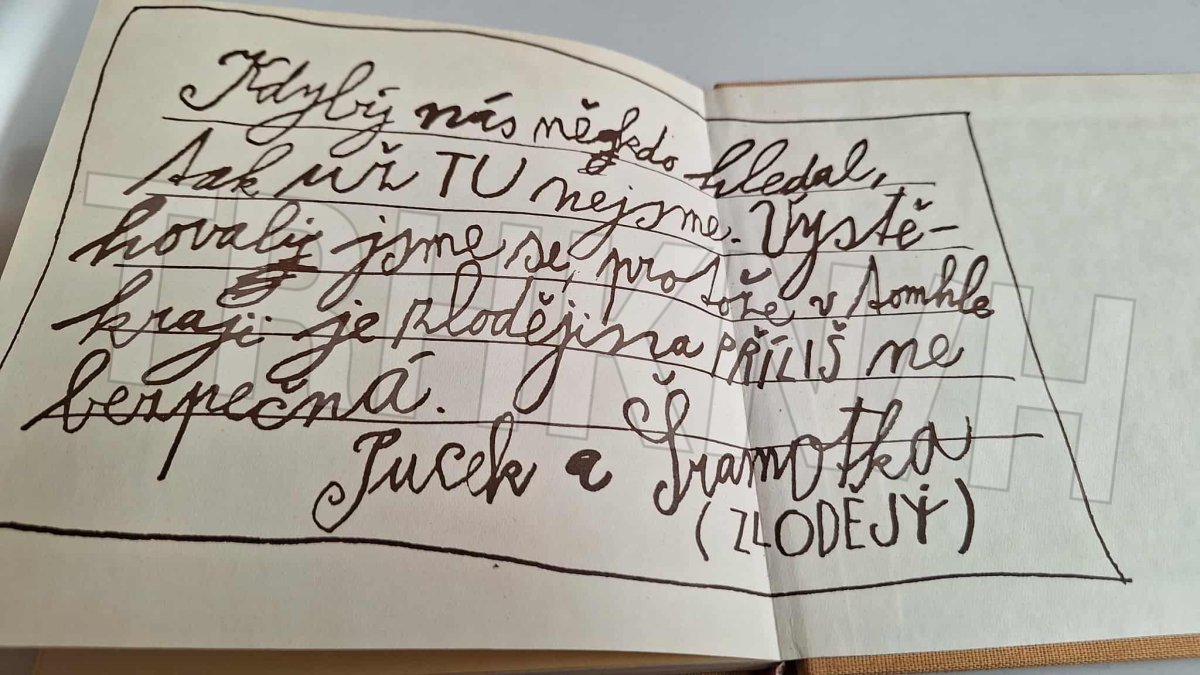 Kdybý nás někdo hledal,
tak už TU nejsme. Vystě-
hovaly jsme se, protože v tomhle
kraji je zlodějina PŘÍLIŠ ne
bezpečná.
Pucek a Šramotka
(ZLODĚJÝ)
TRHKNIH